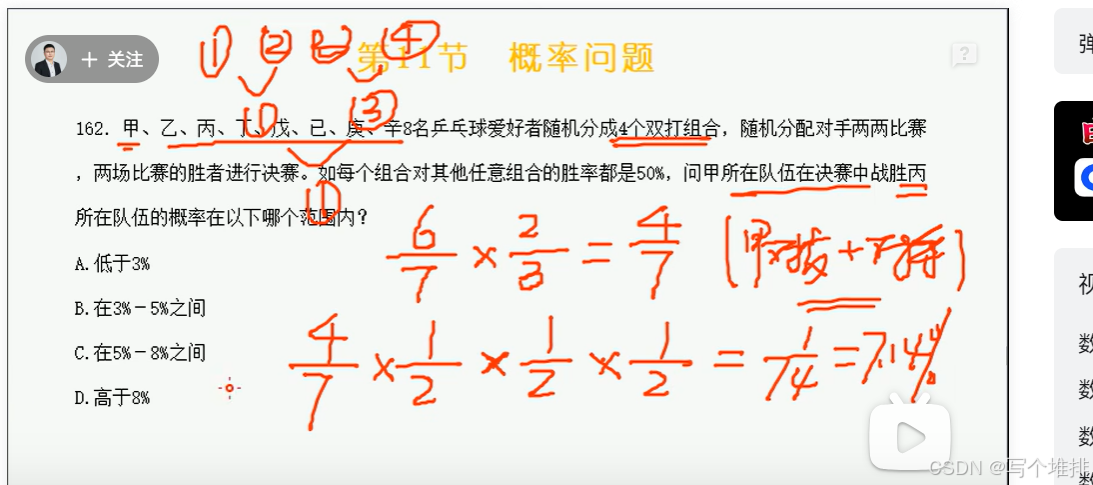 ① ② ③ ④
+ 关注
第11节 概率问题
?
弹
① ③
162. 甲、乙、丙、丁、戊、已、庚、辛8名乒乓球爱好者随机分成4个双打组合，随机分配对手两两比赛
，两场比赛的胜者进行决赛。如每个组合对其他任意组合的胜率都是50%，问甲所在队伍在决赛中战胜丙
①
所在队伍的概率在以下哪个范围内？
6/7 × 2/3 = 4/7
A.低于3%
B.在3%－5%之间
4/7 × 1/2 × 1/2 × 1/2 = 1/14 = 7.14%
C.在5%－8%之间
D.高于8%
视
数
数
数
数
CSDN @写个堆排